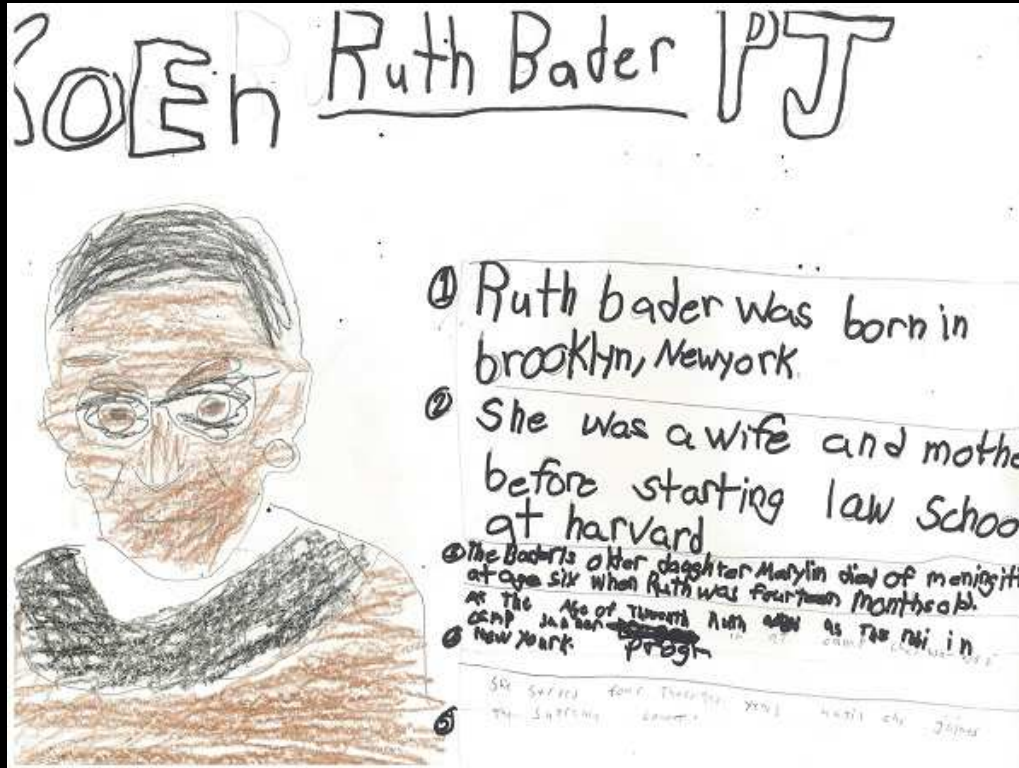 SoEn Ruth Bader PJ
① Ruth bader was born in
brooklyn, Newyork
② She was a wife and mothe
before starting law schoo
at harvard
The Bader's older daughter Marylin died of meningiti
at age six when Ruth was fourteen months old.
at The Age of Ruth as The in
camp
New york. progr
She four years until she joines
⑤ The